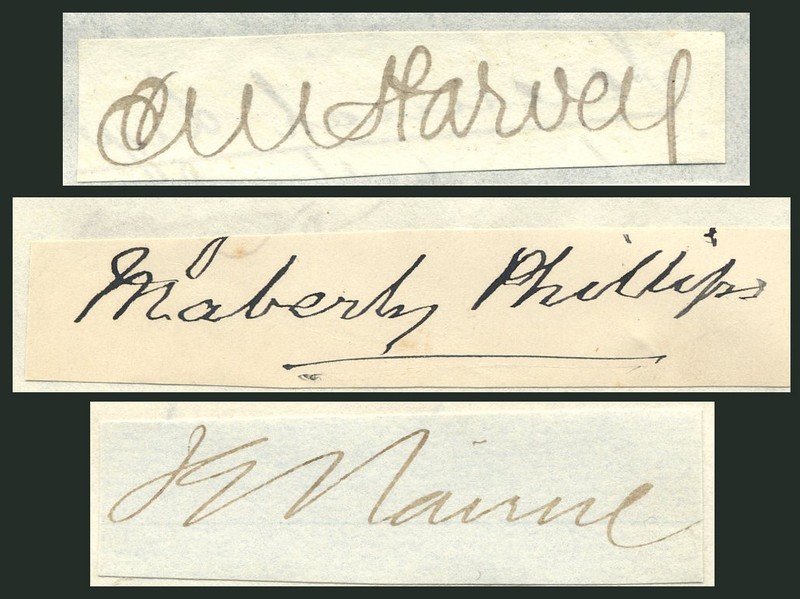 Harvey
Maberly Phillips
J G Nairne